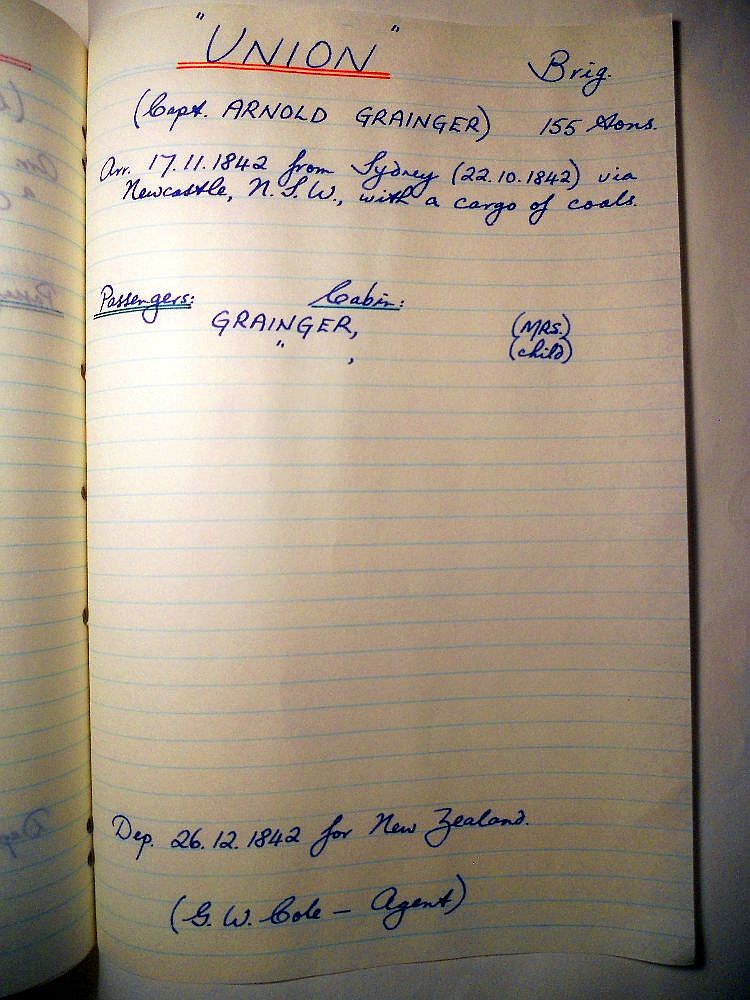 "UNION" Brig.
(Capt. ARNOLD GRAINGER) 155 tons.
Arr. 17.11.1842 from Sydney (22.10.1842) via
Newcastle, N.S.W., with a cargo of coals.
Passengers: Cabin:
GRAINGER, (MRS.)
" , (child)
Dep. 26.12.1842 for New Zealand.
(G. W. Cole – Agent)